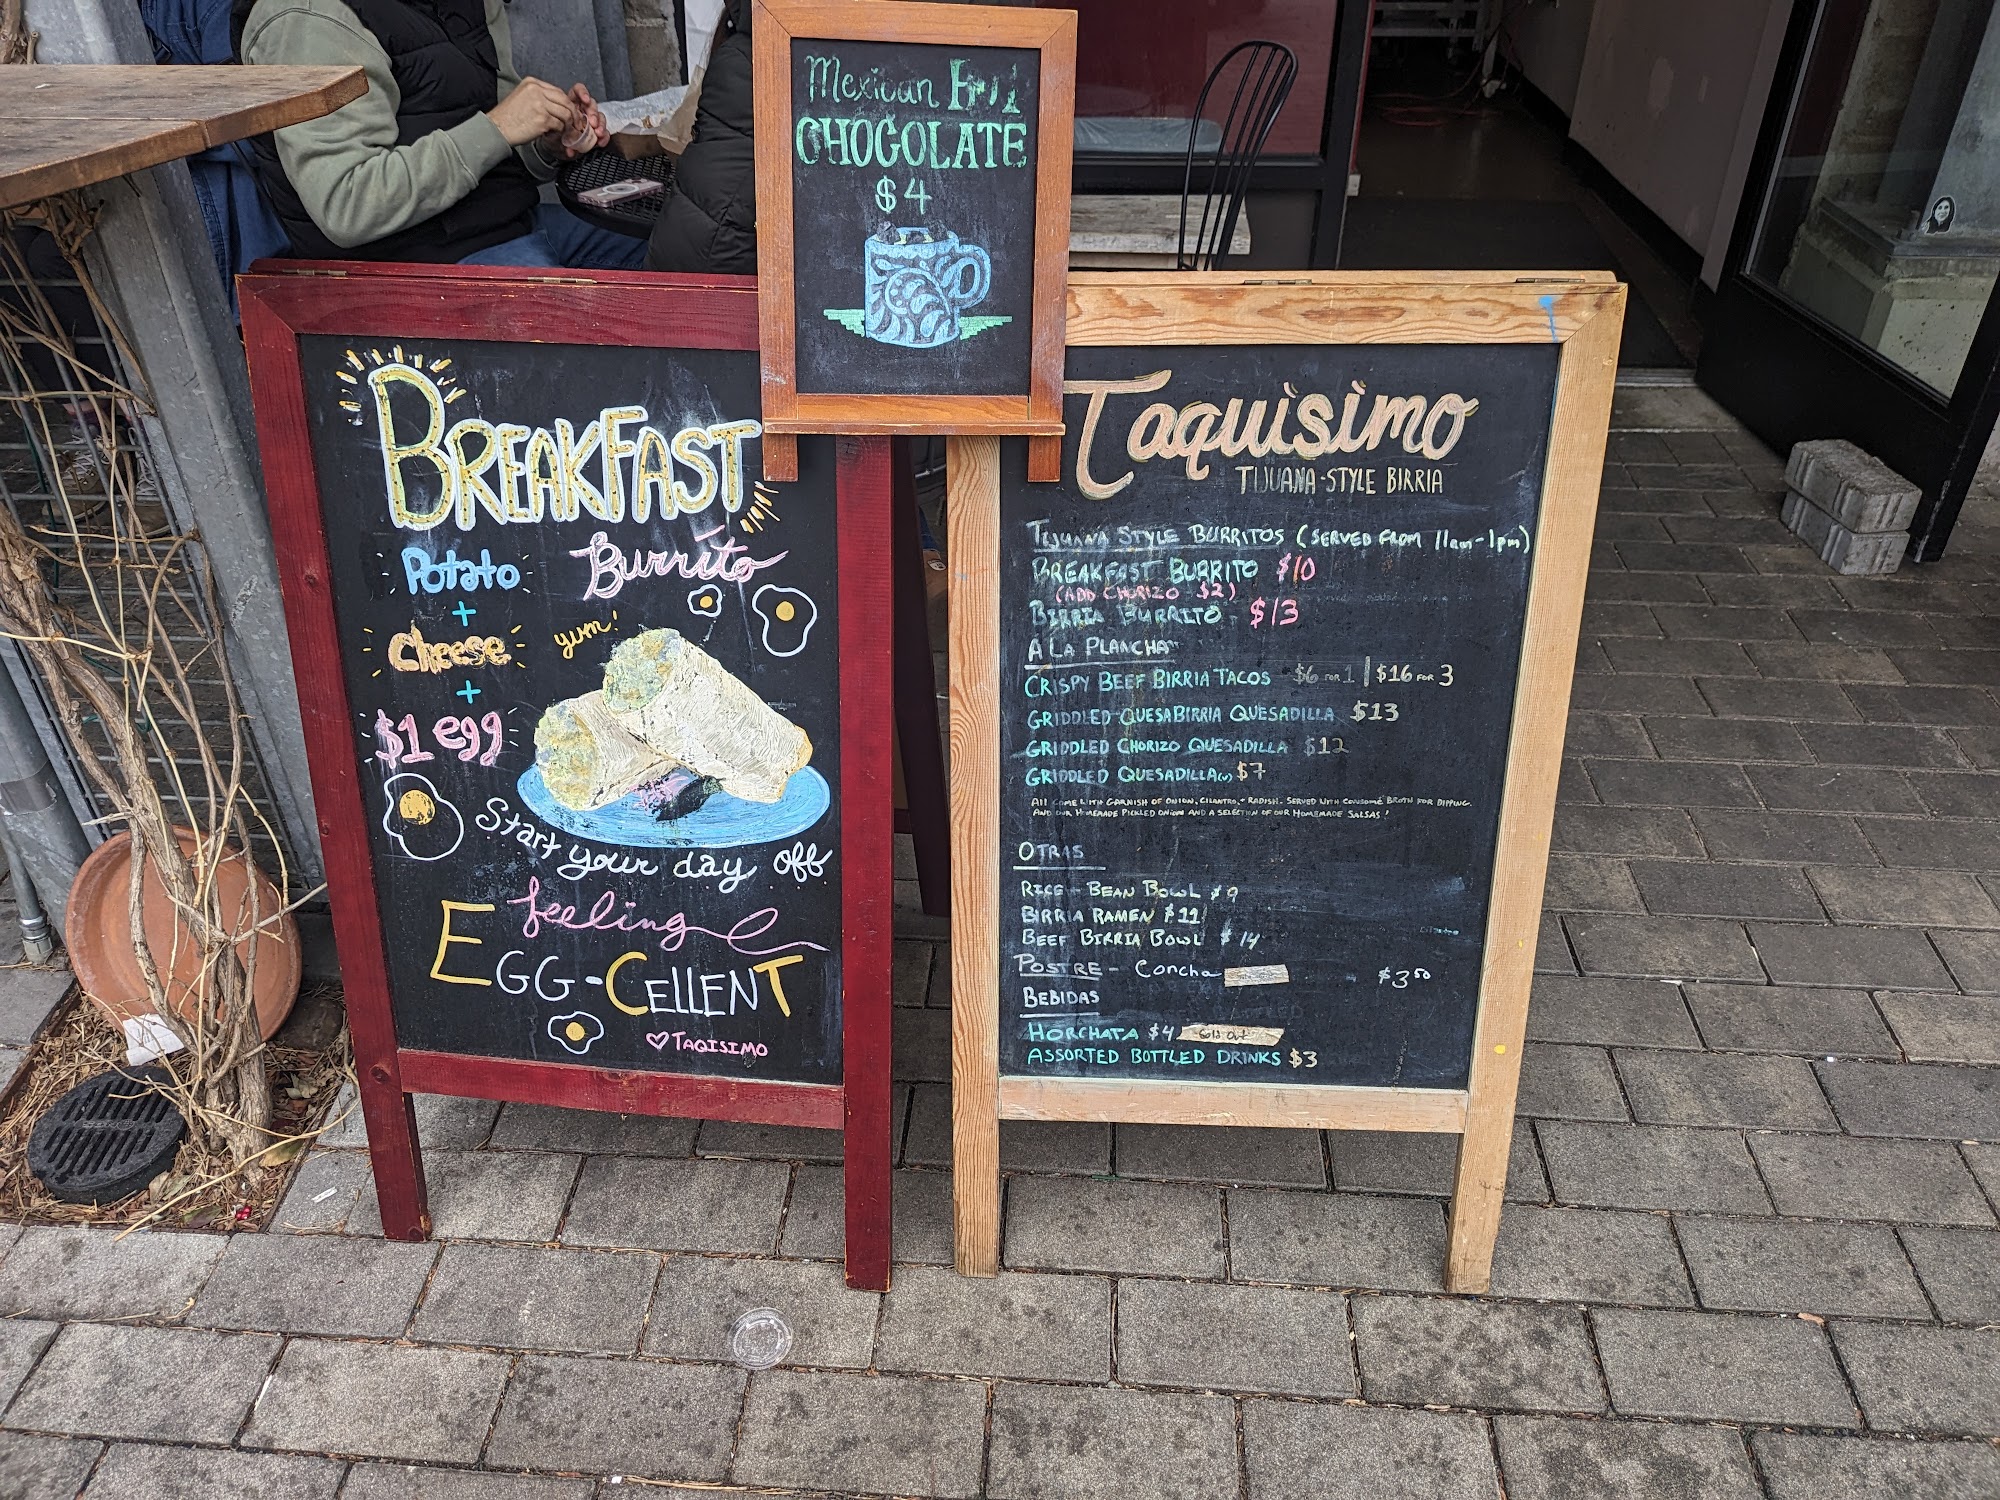 Mexican Hot
CHOCOLATE
$4
BREAKFAST
Burrito
Potato
+
Cheese
+
$1 egg
yum!
Start your day off
feeling
EGG-CELLENT
♡ TAQISIMO
Taquisimo
TIJUANA-STYLE BIRRIA
TIJUANA STYLE BURRITOS (SERVED FROM 11am-1pm)
BREAKFAST BURRITO $10
(ADD CHORIZO $2)
BIRRIA BURRITO - $13
A LA PLANCHA
CRISPY BEEF BIRRIA TACOS $6 FOR 1 | $16 FOR 3
GRIDDLED QUESABIRRIA QUESADILLA $13
GRIDDLED CHORIZO QUESADILLA $12
GRIDDLED QUESADILLA(V) $7
All COME WITH GARNISH OF ONION, CILANTRO, + RADISH. SERVED WITH CONSOMÉ BROTH FOR DIPPING.
AND OUR HOMEMADE PICKLED ONION AND A SELECTION OF OUR HOMEMADE SALSAS!
OTRAS
RICE - BEAN BOWL $9
BIRRIA RAMEN $11
BEEF BIRRIA BOWL $14
POSTRE - Concha $3.50
BEBIDAS
HORCHATA $4 Sold out
ASSORTED BOTTLED DRINKS $3